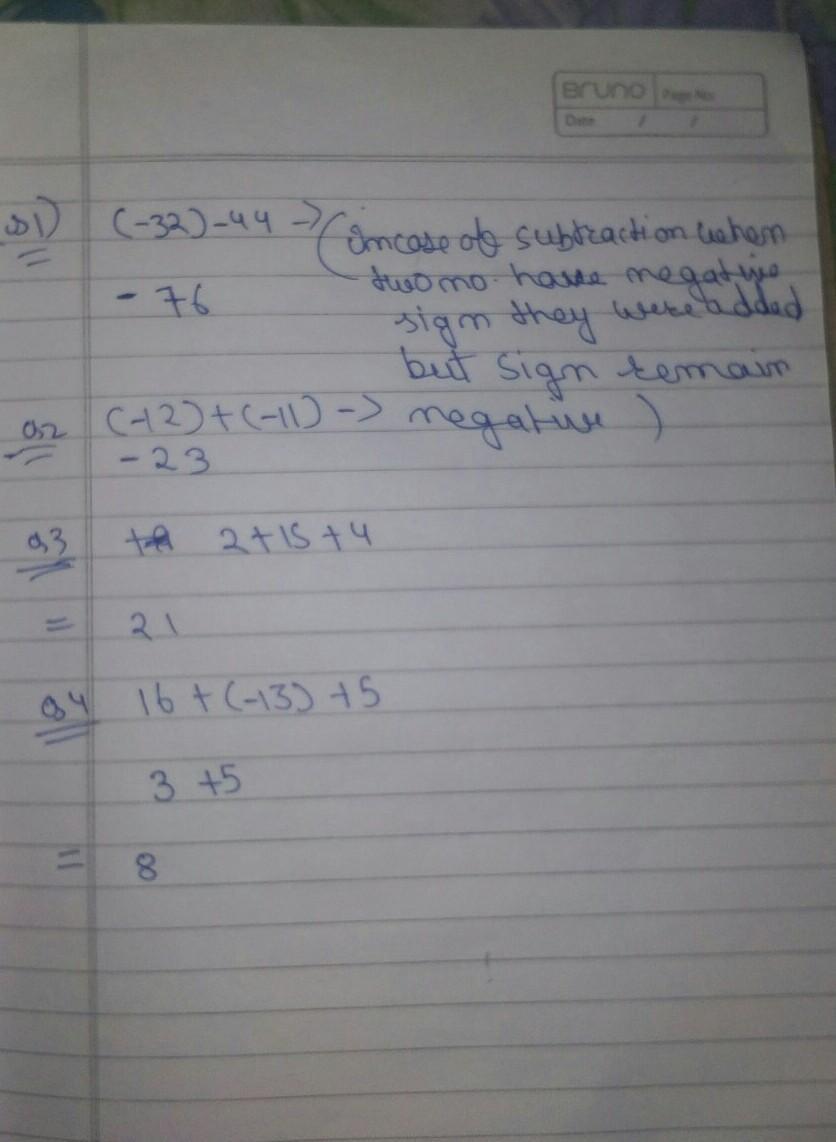 Bruno Page No:
Date / /
Q1) (-32)-44 → (Incase of subtraction when
two no. have negative
- 76
sign they were added
but sign remain
Q2 (-12)+(-11) → negative )
-23
Q3 2+15+4
= 21
Q4 16+(-13)+5
3 +5
= 8